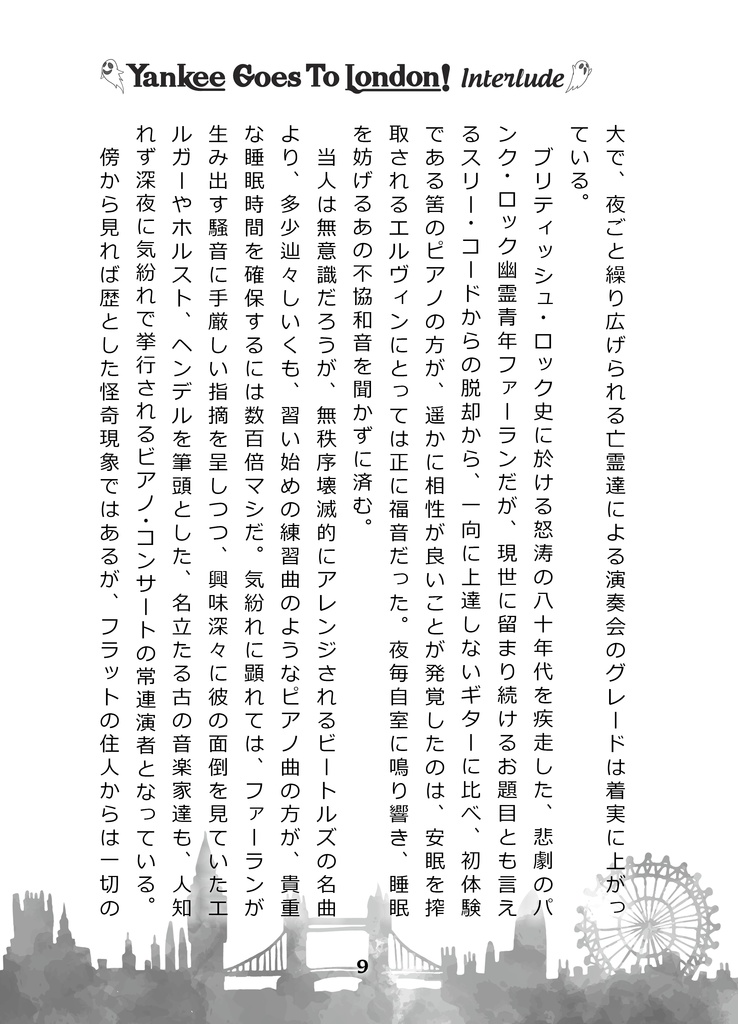 Yankee Goes To London! Interlude
大で、夜ごと繰り広げられる亡霊達による演奏会のグレードは着実に上がっ
ている。
ブリティッシュ・ロック史に於ける怒涛の八十年代を疾走した、悲劇のパ
ンク・ロック幽霊青年ファーランだが、現世に留まり続けるお題目とも言え
るスリー・コードからの脱却から、一向に上達しないギターに比べ、初体験
である筈のピアノの方が、遥かに相性が良いことが発覚したのは、安眠を搾
取されるエルヴィンにとっては正に福音だった。夜毎自室に鳴り響き、睡眠
を妨げるあの不協和音を聞かずに済む。
当人は無意識だろうが、無秩序壊滅的にアレンジされるビートルズの名曲
より、多少辿々しいくも、習い始めの練習曲のようなピアノ曲の方が、貴重
な睡眠時間を確保するには数百倍マシだ。気紛れに顕れては、ファーランが
生み出す騒音に手厳しい指摘を呈しつつ、興味深々に彼の面倒を見ていたエ
ルガーやホルスト、ヘンデルを筆頭とした、名立たる古の音楽家達も、人知
れず深夜に気紛れで挙行されるピアノ・コンサートの常連演者となっている。
傍から見れば歴とした怪奇現象ではあるが、フラットの住人からは一切の
9